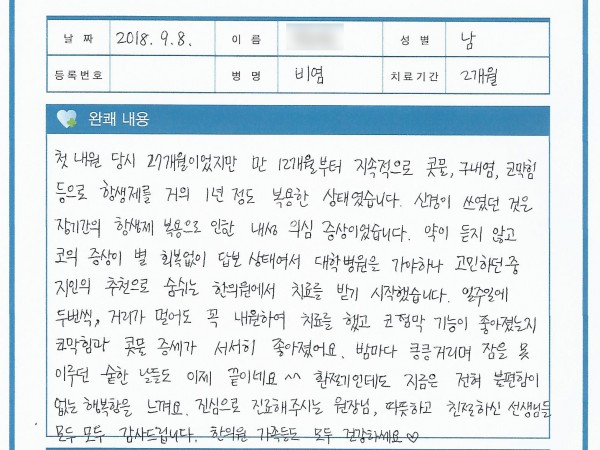 날 짜 2018. 9. 8. 이 름 성 별 남
등록번호 병 명 비염 치료기간 2개월
완쾌 내용
첫 내원 당시 27개월이었지만 만 12개월부터 지속적으로 콧물, 구내염, 코막힘
등으로 항생제를 거의 1년 정도 복용한 상태였습니다. 신경이 쓰였던 것은
장기간의 항생제 복용으로 인한 내성 의심 증상이었습니다. 약이 듣지 않고
코의 증상이 별 회복없이 답보 상태여서 대학병원을 가야하나 고민하던 중
지인의 추천으로 숨쉬는 한의원에서 치료를 받기 시작했습니다. 일주일에
두번씩, 거리가 멀어도 꼭 내원하여 치료를 했고 코점막 기능이 좋아졌는지
코막힘과 콧물 증세가 서서히 좋아졌어요. 밤마다 킁킁거리며 잠을 못
이루던 숱한 날들도 이제 끝이네요 ^^ 환절기인데도 지금은 전혀 불편함이
없는 행복함을 느껴요. 진심으로 진료해주시는 원장님, 따뜻하고 친절하신 선생님들
모두 모두 감사드립니다. 한의원 가족들도 모두 건강하세요♡